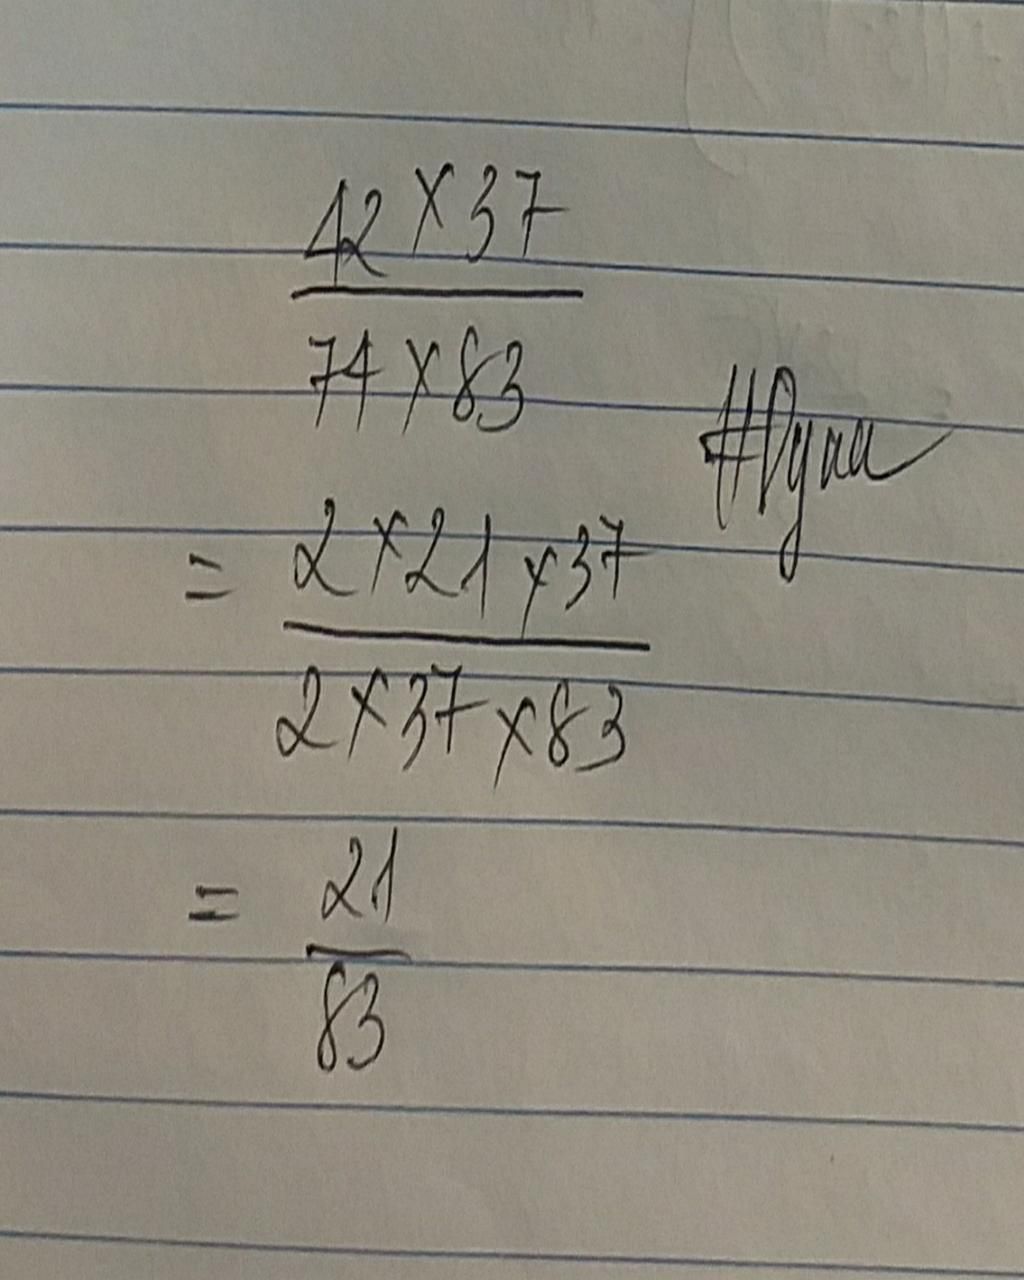 42 × 37
74 × 83
= 2 × 21 × 37
2 × 37 × 83
= 21
83